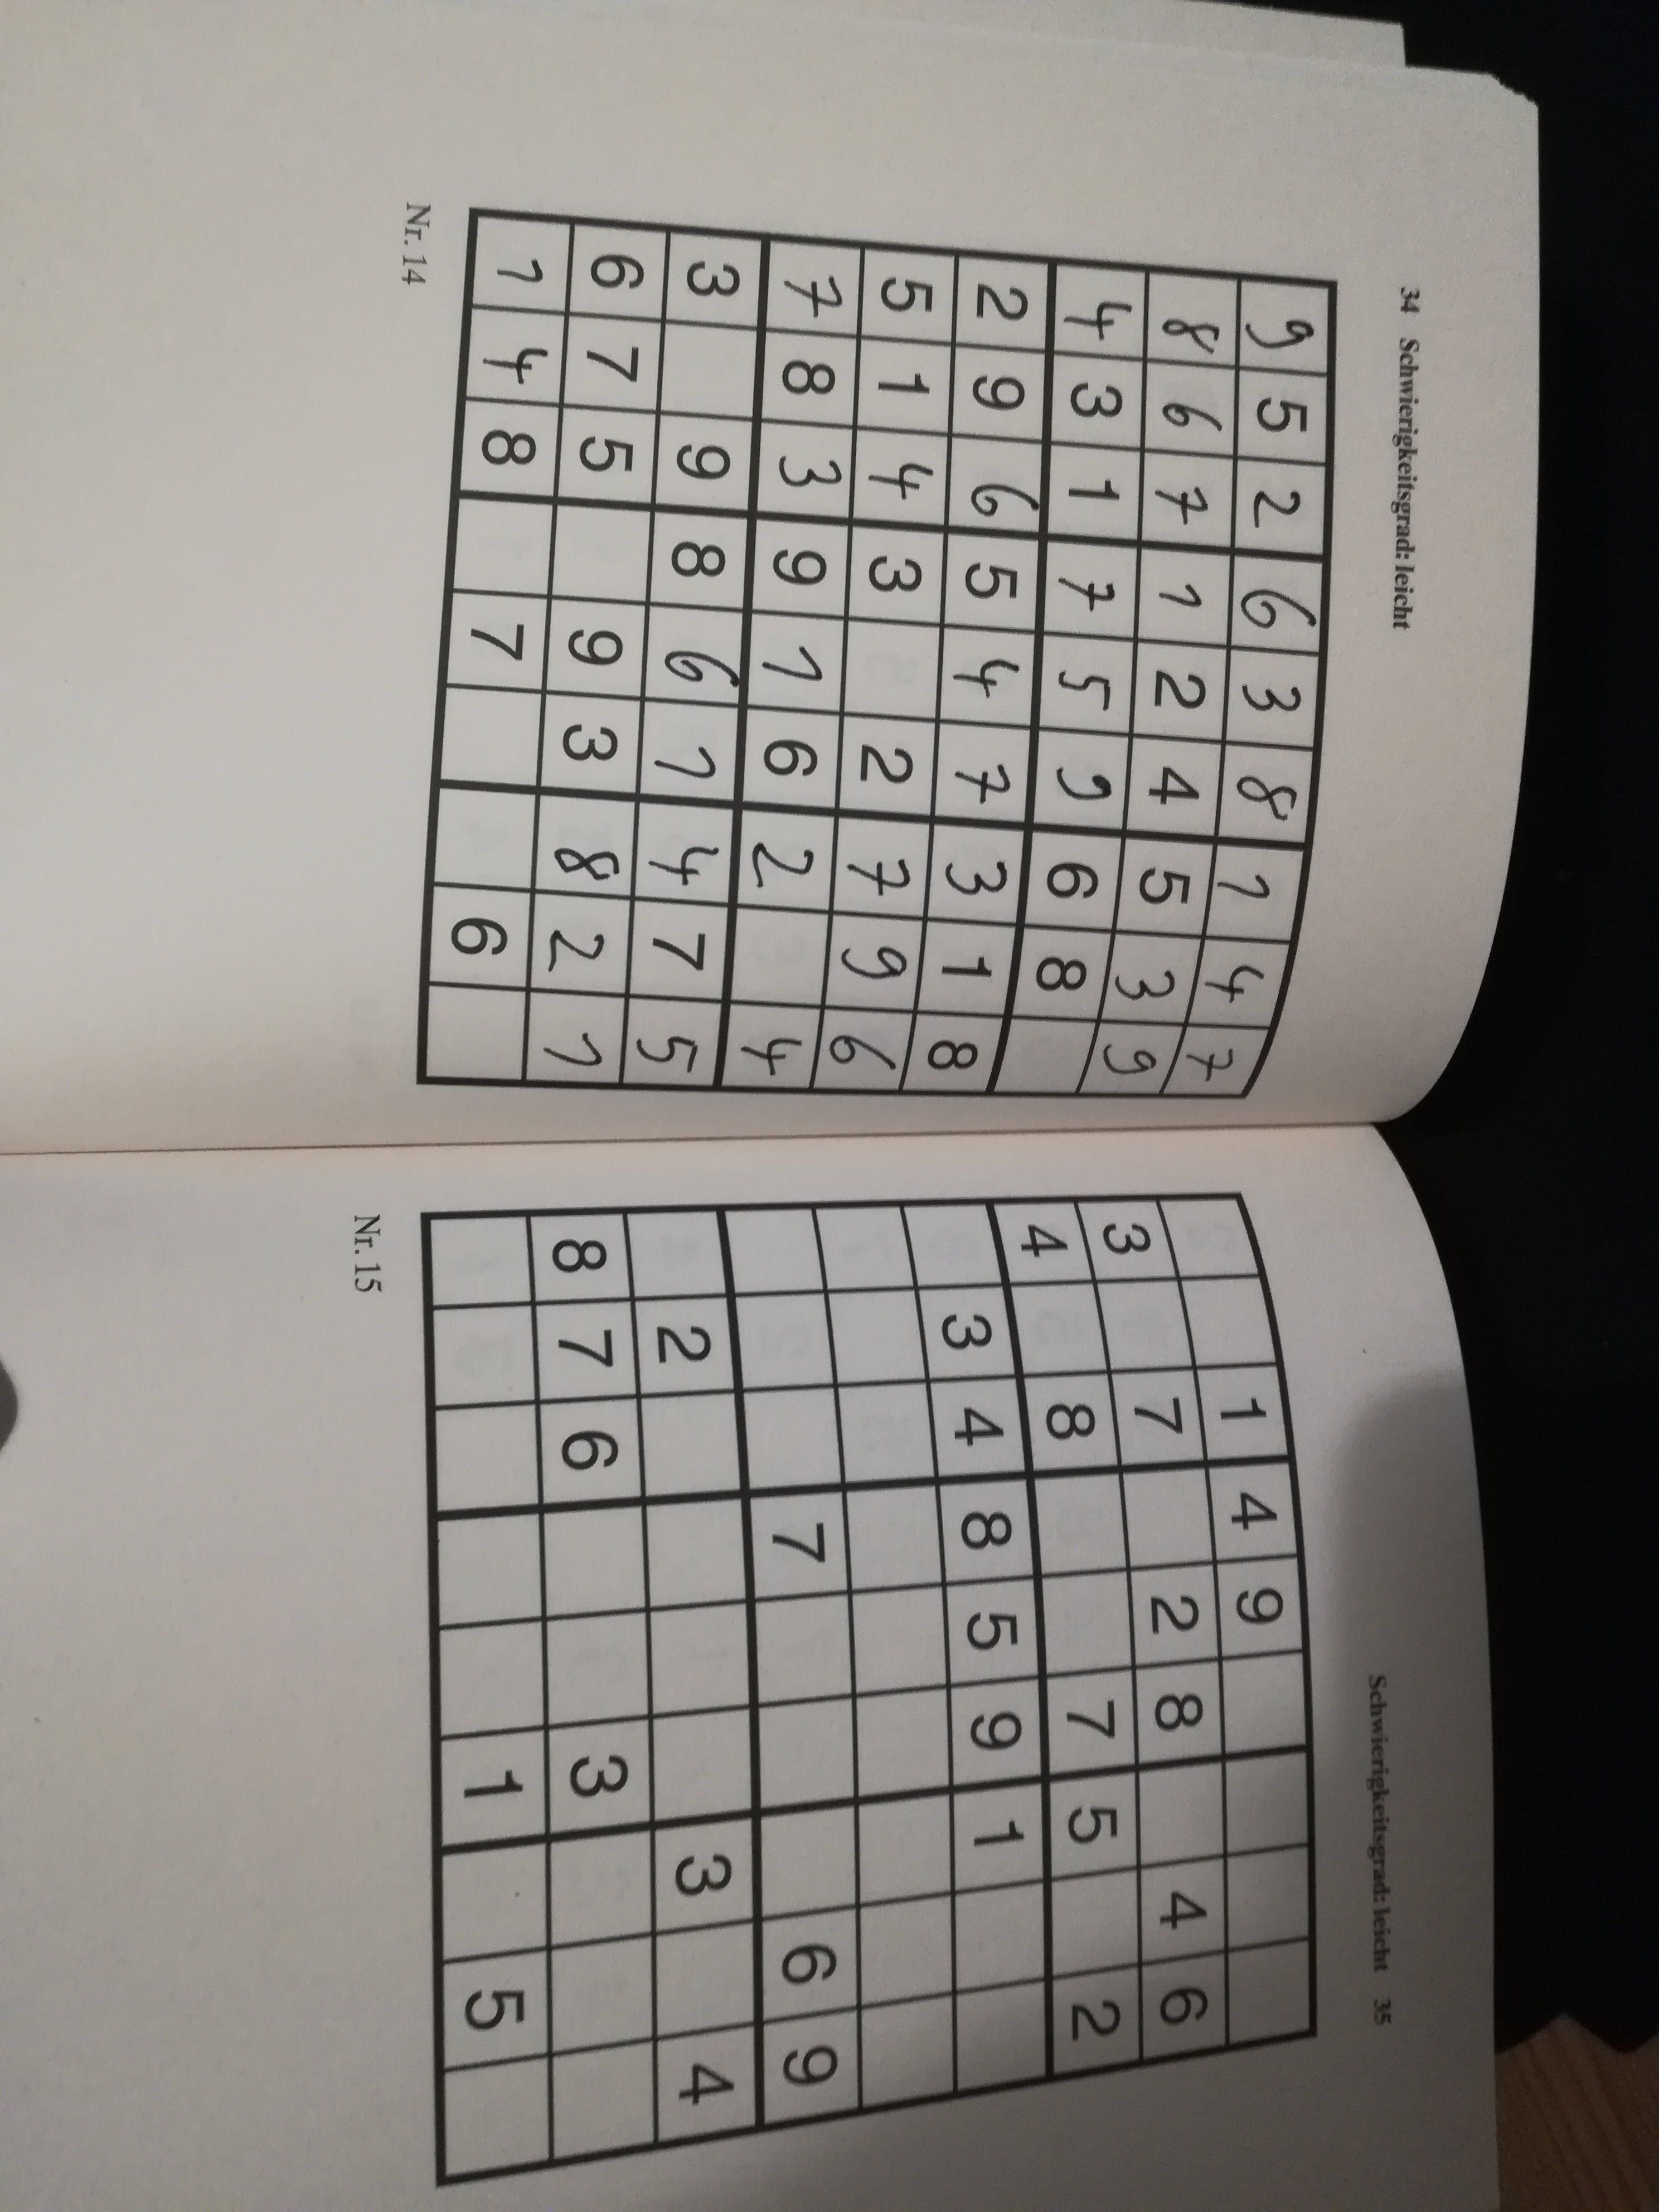 34 Schwierigkeitsgrad: leicht
9 5 2 6 3 8 1 4 7
8 6 7 1 2 4 5 3 9
4 3 1 7 5 9 6 8
2 9 6 5 4 7 3 1 8
5 1 4 3 2 7 9 6
7 8 3 9 1 6 2 4
3 9 8 6 1 4 7 5
6 7 5 9 3 8 2 1
1 4 8 7 6
Nr. 14
Schwierigkeitsgrad: leicht 35
1 4 9
3 7 2 8 4 6
4 8 7 5 2
3 4 8 5 9 1
7 6 9
2 3 4
8 7 6 3
1 5
Nr. 15